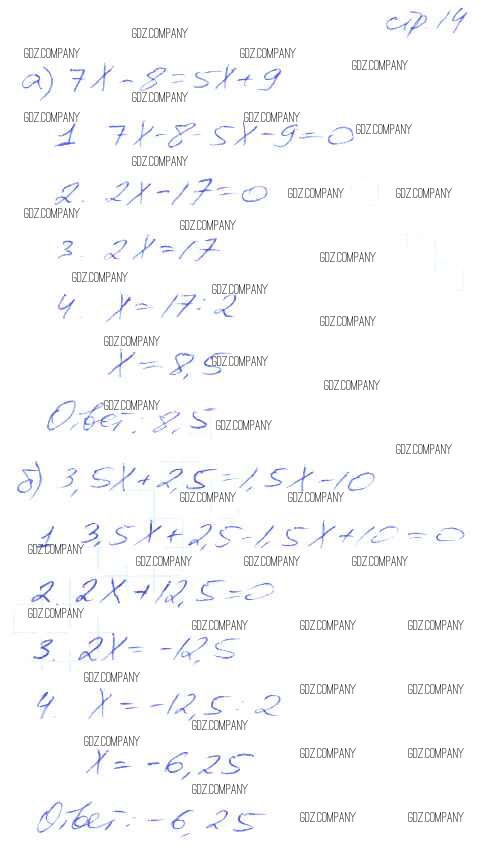 стр 14
а) 7x - 8 = 5x + 9
1 7x - 8 - 5x - 9 = 0
2. 2x - 17 = 0
3. 2x = 17
4. x = 17 : 2
x = 8,5
Ответ: 8,5
б) 3,5x + 2,5 = 1,5x - 10
1 3,5x + 2,5 - 1,5x + 10 = 0
2. 2x + 12,5 = 0
3. 2x = -12,5
4. x = -12,5 : 2
x = -6,25
Ответ: -6,25
GDZ.COMPANY